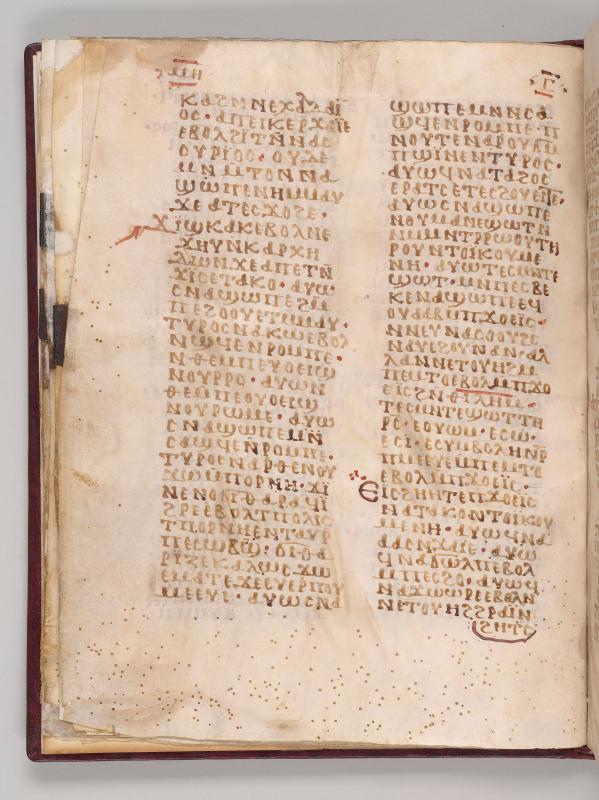 ⲙⲏ
Ⲅ
ⲕⲁϩⲛⲛⲉⲭⲁⲗⲇⲁⲓ̈
ⲟⲥ· ⲁⲡⲉⲓⲕⲉⲣϫⲟⲓ̈ⲉ
ⲉⲃⲟⲗϩⲓ̈ⲧⲛ̄ⲛⲁⲥ
ⲥⲩⲣⲓ̈ⲟⲥ· ⲟⲩⲇⲉ
ⲙⲛⲙⲧⲟⲛⲛⲁ
ϣⲱⲡⲉⲛⲏⲙⲙⲁⲩ
ϫⲉⲁⲧⲉⲥϫⲟϩⲉ·
ϫⲓ̈ϣⲕⲁⲕⲉⲃⲟⲗⲛⲉ
ϫⲏⲩⲛ̄ⲕⲁⲣⲭⲏ
ⲇⲱⲛ·ϫⲉⲁⲡⲉⲧⲛ̄
ϫⲓ̈ⲥⲉⲧⲁⲕⲟ· ⲁⲩⲱ
ⲥⲛⲁϣⲱⲡⲉϩⲙ̄
ⲡⲉϩⲟⲟⲩⲉⲧⲙⲙⲁⲩ·
ⲧⲩⲣⲟⲥⲛⲁⲕⲱⲉⲃⲟⲗ
ⲛϣϥⲉⲛⲣⲟⲙⲡⲉ·
ⲛⲑⲉⲙⲡⲉⲩⲟⲉⲓϣ
ⲛⲟⲩⲣⲣⲟ· ⲁⲩⲱⲛ̄
ⲑⲉⲙⲡⲉⲟⲩⲟⲉⲓϣ
ⲛⲟⲩⲣⲱⲙⲉ· ⲁⲩⲱ
ⲥⲛⲁϣⲱⲡⲉⲙⲛ̄
ⲥⲁϣϥⲉⲛ̄ⲣⲟⲙⲡⲉ·
ⲧⲩⲣⲟⲥⲛⲁⲣⲑⲉⲛⲟⲩ
ϫⲱⲙⲡⲟⲣⲛⲏ· ϫⲓ̈
ϩⲣⲉⲉⲃⲟⲗⲧⲡⲟⲗⲓⲥ
ⲧⲡⲟⲣⲛⲏⲉⲛⲧⲁⲩⲣ
ⲡⲉⲥⲱⲃϣ̄: ϭⲓⲑⲁ
ⲣⲓ̈ⲍⲉⲕⲁⲗⲱⲥ·ϫⲱ
ⲉⲙⲁⲧⲉϫⲉⲉⲩⲉⲣⲡⲟⲩ
ⲙⲉⲉⲩⲉ· ⲁⲩⲱⲥⲛⲁ
ϣⲱⲡⲉⲙⲛⲛⲥⲁ
ϣϥⲉⲛⲣⲟⲙⲡⲉ· ⲡ
ⲛⲟⲩⲧⲉⲛⲁⲣⲟⲩⲙ
ⲡϣⲓ̈ⲛⲉⲛⲧⲩⲣⲟⲥ·
ⲁⲩⲱϥⲛⲁⲧⲁϩⲟⲥ
ⲉⲣⲁⲧⲥⲉⲧⲉϩⲟⲩⲉⲓⲧⲉ·
ⲁⲩⲱⲥⲛⲁϣⲱⲡⲉ
ⲛⲟⲩⲙⲁⲛⲉϣⲱⲧⲛ
ⲙⲙⲛⲧⲣⲣⲱⲟⲩⲧⲏ
ⲣⲟⲩⲛⲧⲟⲓⲕⲟⲩⲙⲉ
ⲛⲏ· ⲁⲩⲱⲧⲉⲥⲙⲛⲧⲉ
ϣⲱⲧ· ⲙⲛⲡⲉⲥⲃⲉ
ⲕⲉⲛⲁϣⲱⲡⲉⲉϥ
ⲟⲩⲁⲁⲃⲙⲡϫⲟⲉⲓⲥ·
ⲛⲛⲉⲩⲛⲁⲥⲟⲟⲩϩⲥ
ⲛⲁⲩⲉϩⲟⲩⲛⲁⲛ· ⲁⲗ
ⲗⲁⲛⲛⲉⲧⲟⲩⲏϩⲙ
ⲡⲉⲙⲧⲟⲉⲃⲟⲗⲙⲡϫⲟ
ⲉⲓⲥϩⲛⲑⲓⲗⲏⲙ·
ⲧⲉⲥⲙⲛⲧⲉϣⲱⲧⲧⲏ
ⲣⲥ· ⲉⲟⲩⲱⲙ· ⲉⲥⲱ·
ⲉⲥⲓ· ⲉⲥⲩⲙⲃⲟⲗⲏⲛⲣ
ⲡⲙⲉⲉⲩⲉⲙⲡⲉⲙⲧⲟ
ⲉⲃⲟⲗⲙⲡϫⲟⲉⲓⲥ·
Ⲉⲓⲥϩⲏⲏⲧⲉⲡϫⲟⲉⲓⲥ
ⲛⲁⲧⲁⲕⲟⲛⲧⲟⲓ̈ⲕⲟⲩ
ⲙⲉⲛⲏ· ⲁⲩⲱϥⲛⲁ
ⲁⲁⲥⲛϫⲁⲓ̈ⲉ· ⲁⲩⲱ
ϥⲛⲁϭⲱⲗⲡⲉⲃⲟⲗ
ⲙⲡⲉⲥϩⲟ· ⲁⲩⲱϥ
ⲛⲁϫⲱⲱⲣⲉⲉⲃⲟⲗⲛ
ⲛⲉⲧⲟⲩⲏϩϩⲣⲁⲓ̈ⲛ
ϩⲏⲧⲥ